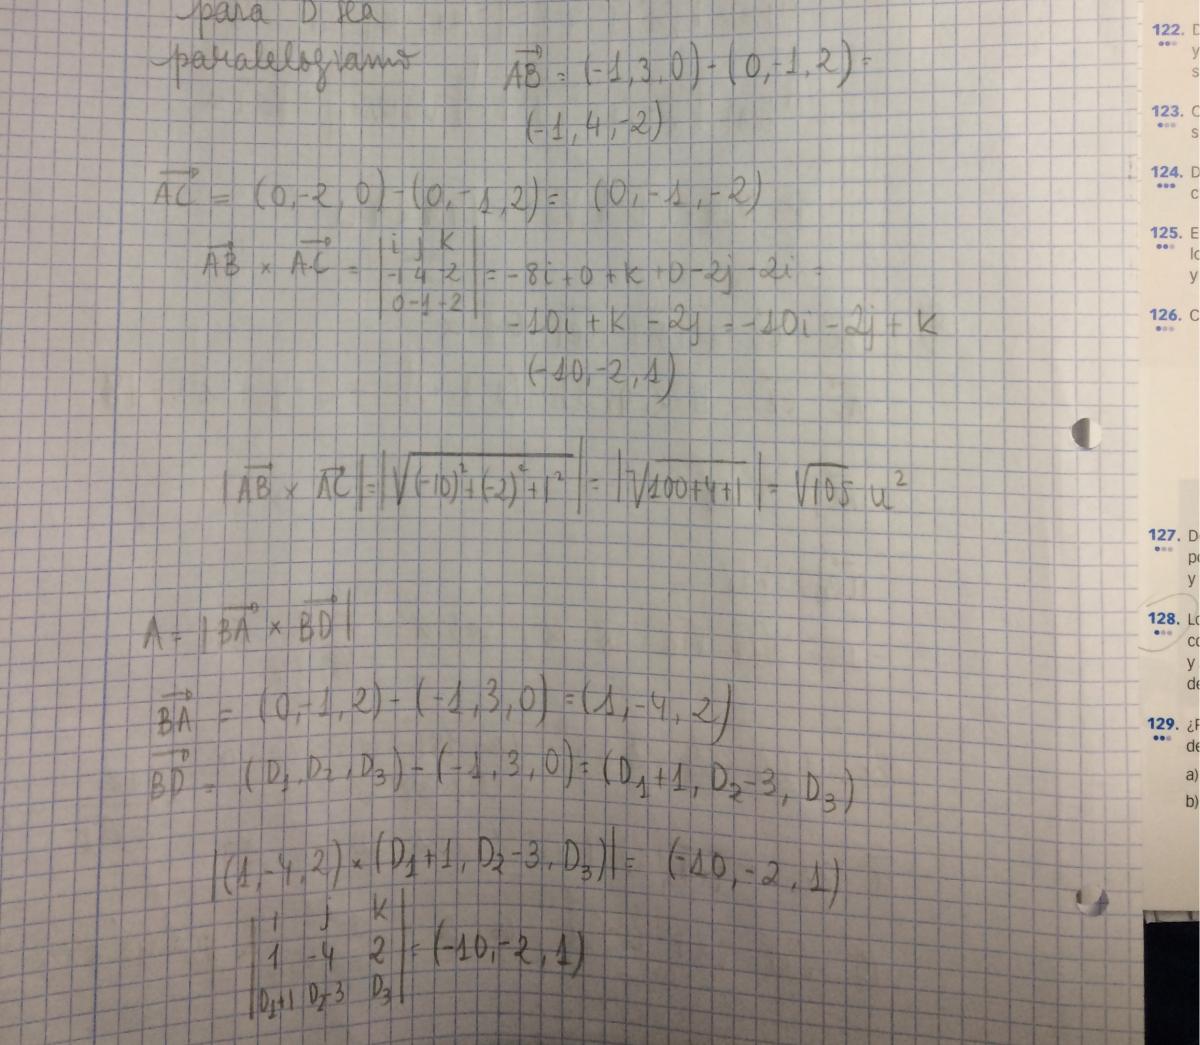 para D sea
paralelogramo
AB = (-1,3,0) - (0,-1,2) =
(-1,4,-2)
AC = (0,-2,0) - (0,-1,2) = (0,-1,-2)
AB × AC = | i j k | = -8i + 0 + k + 0 - 2j - 2i =
| -1 4 -2 |
| 0 -1 -2 |
-10i + k - 2j = -10i - 2j + k
(-10,-2,1)
|AB × AC| = |√(-10)²+(-2)²+1²| = |√100+4+1| = √105 u²
A = |BA × BD|
BA = (0,-1,2) - (-1,3,0) = (1,-4,2)
BD = (D₁,D₂,D₃) - (-1,3,0) = (D₁+1, D₂-3, D₃)
|(1,-4,2) × (D₁+1, D₂-3, D₃)| = (-10,-2,1)
| i j k |
| 1 -4 2 | = (-10,-2,1)
| D₁+1 D₂-3 D₃ |
122. D
y
s
123. C
s
124. D
c
125. E
lo
y
126. C
127. De
po
y
128. Lo
co
y
de
129. ¿P
de
a)
b)